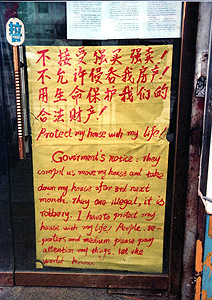 拉
不接受强买强卖!
不允许侵吞我房产!
用生命保护我们的
合法财产!
Protect my house with my life!
Goverment's notice: they
compel us move my house and take
down my house after 3rd next
month. They are illegal, it is
robbery. I have to protect my
house with my life! People, re-
porters and medium please pay
attention my things. Let the
world know.